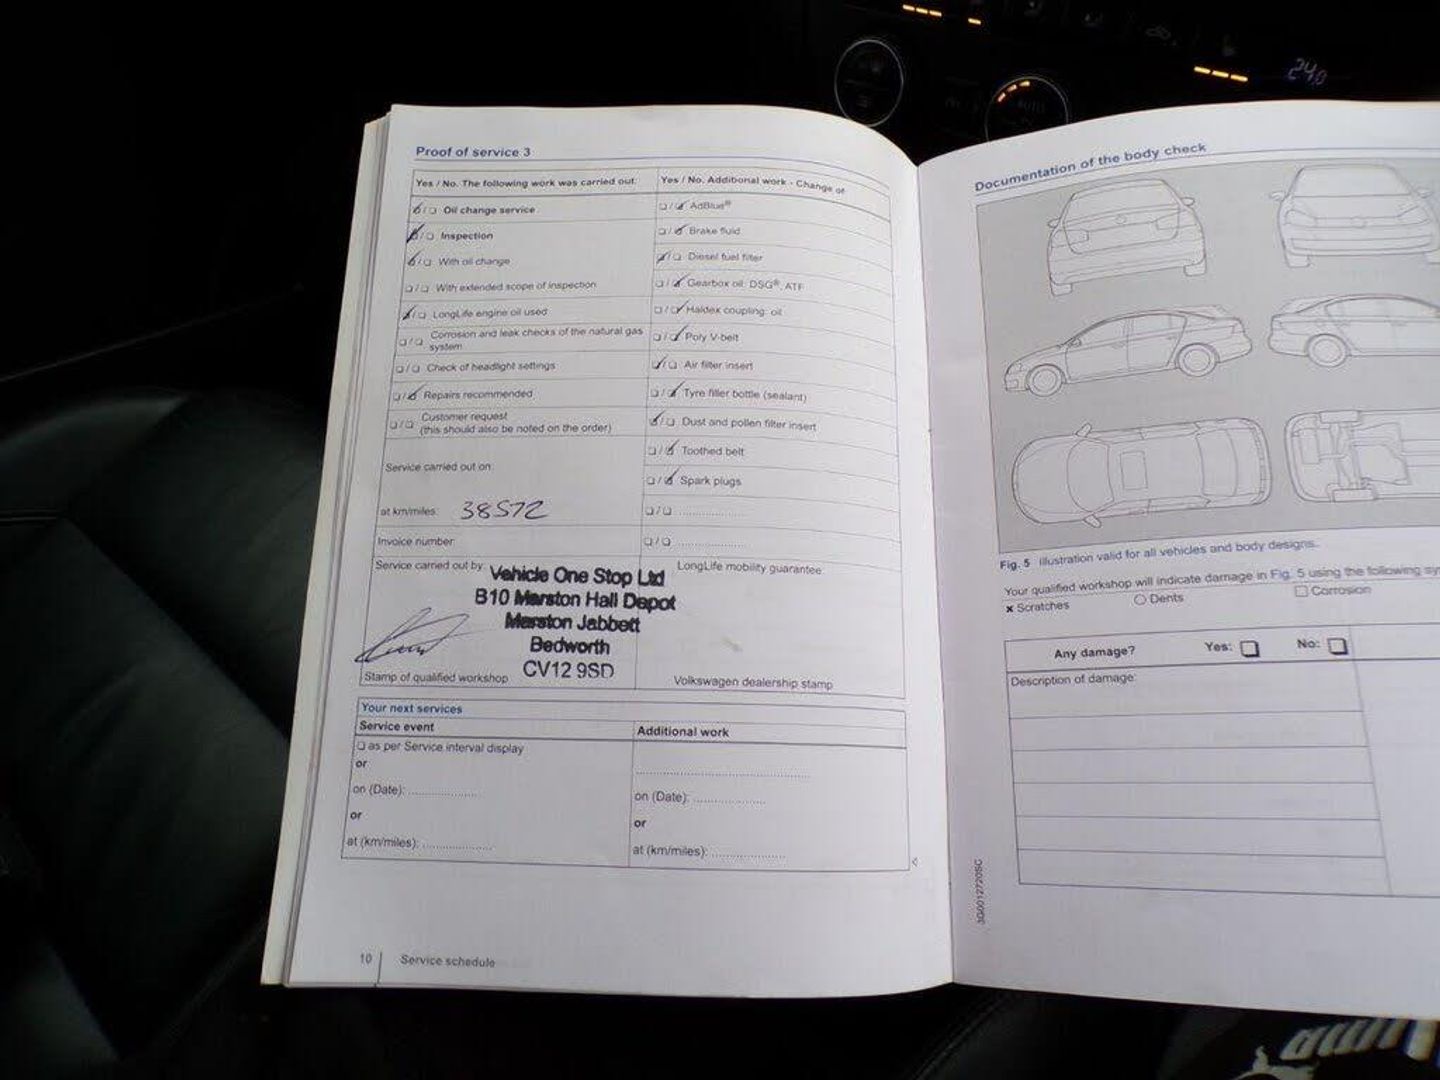 24.0
AUTO
Proof of service 3
Yes / No. The following work was carried out:
Yes / No. Additional work - Change of
❏/❏ Oil change service
❏/❏ AdBlue®
❏/❏ Inspection
❏/❏ Brake fluid
❏/❏ With oil change
❏/❏ Diesel fuel filter
❏/❏ With extended scope of inspection
❏/❏ Gearbox oil: DSG®, ATF
❏/❏ LongLife engine oil used
❏/❏ Haldex coupling: oil
❏/❏ Corrosion and leak checks of the natural gas
system
❏/❏ Poly V-belt
❏/❏ Check of headlight settings
❏/❏ Air filter insert
❏/❏ Repairs recommended
❏/❏ Tyre filler bottle (sealant)
❏/❏ Customer request
(this should also be noted on the order)
❏/❏ Dust and pollen filter insert
❏/❏ Toothed belt
Service carried out on:
❏/❏ Spark plugs
at km/miles: 38572
❏/❏ ....................
Invoice number:
❏/❏ ....................
Service carried out by:
LongLife mobility guarantee:
Vehicle One Stop Ltd
B10 Marston Hall Depot
Marston Jabbett
Bedworth
CV12 9SD
Stamp of qualified workshop
Volkswagen dealership stamp
Your next services
Service event
Additional work
❏ as per Service interval display
or
on (Date): ....................
or
at (km/miles): ....................
on (Date): ....................
or
at (km/miles): ....................
10
Service schedule
Documentation of the body check
Fig. 5 Illustration valid for all vehicles and body designs.
Your qualified workshop will indicate damage in Fig. 5 using the following sy
× Scratches
○ Dents
□ Corrosion
Any damage?
Yes: ❏
No: ❏
Description of damage:
3G0012720SC